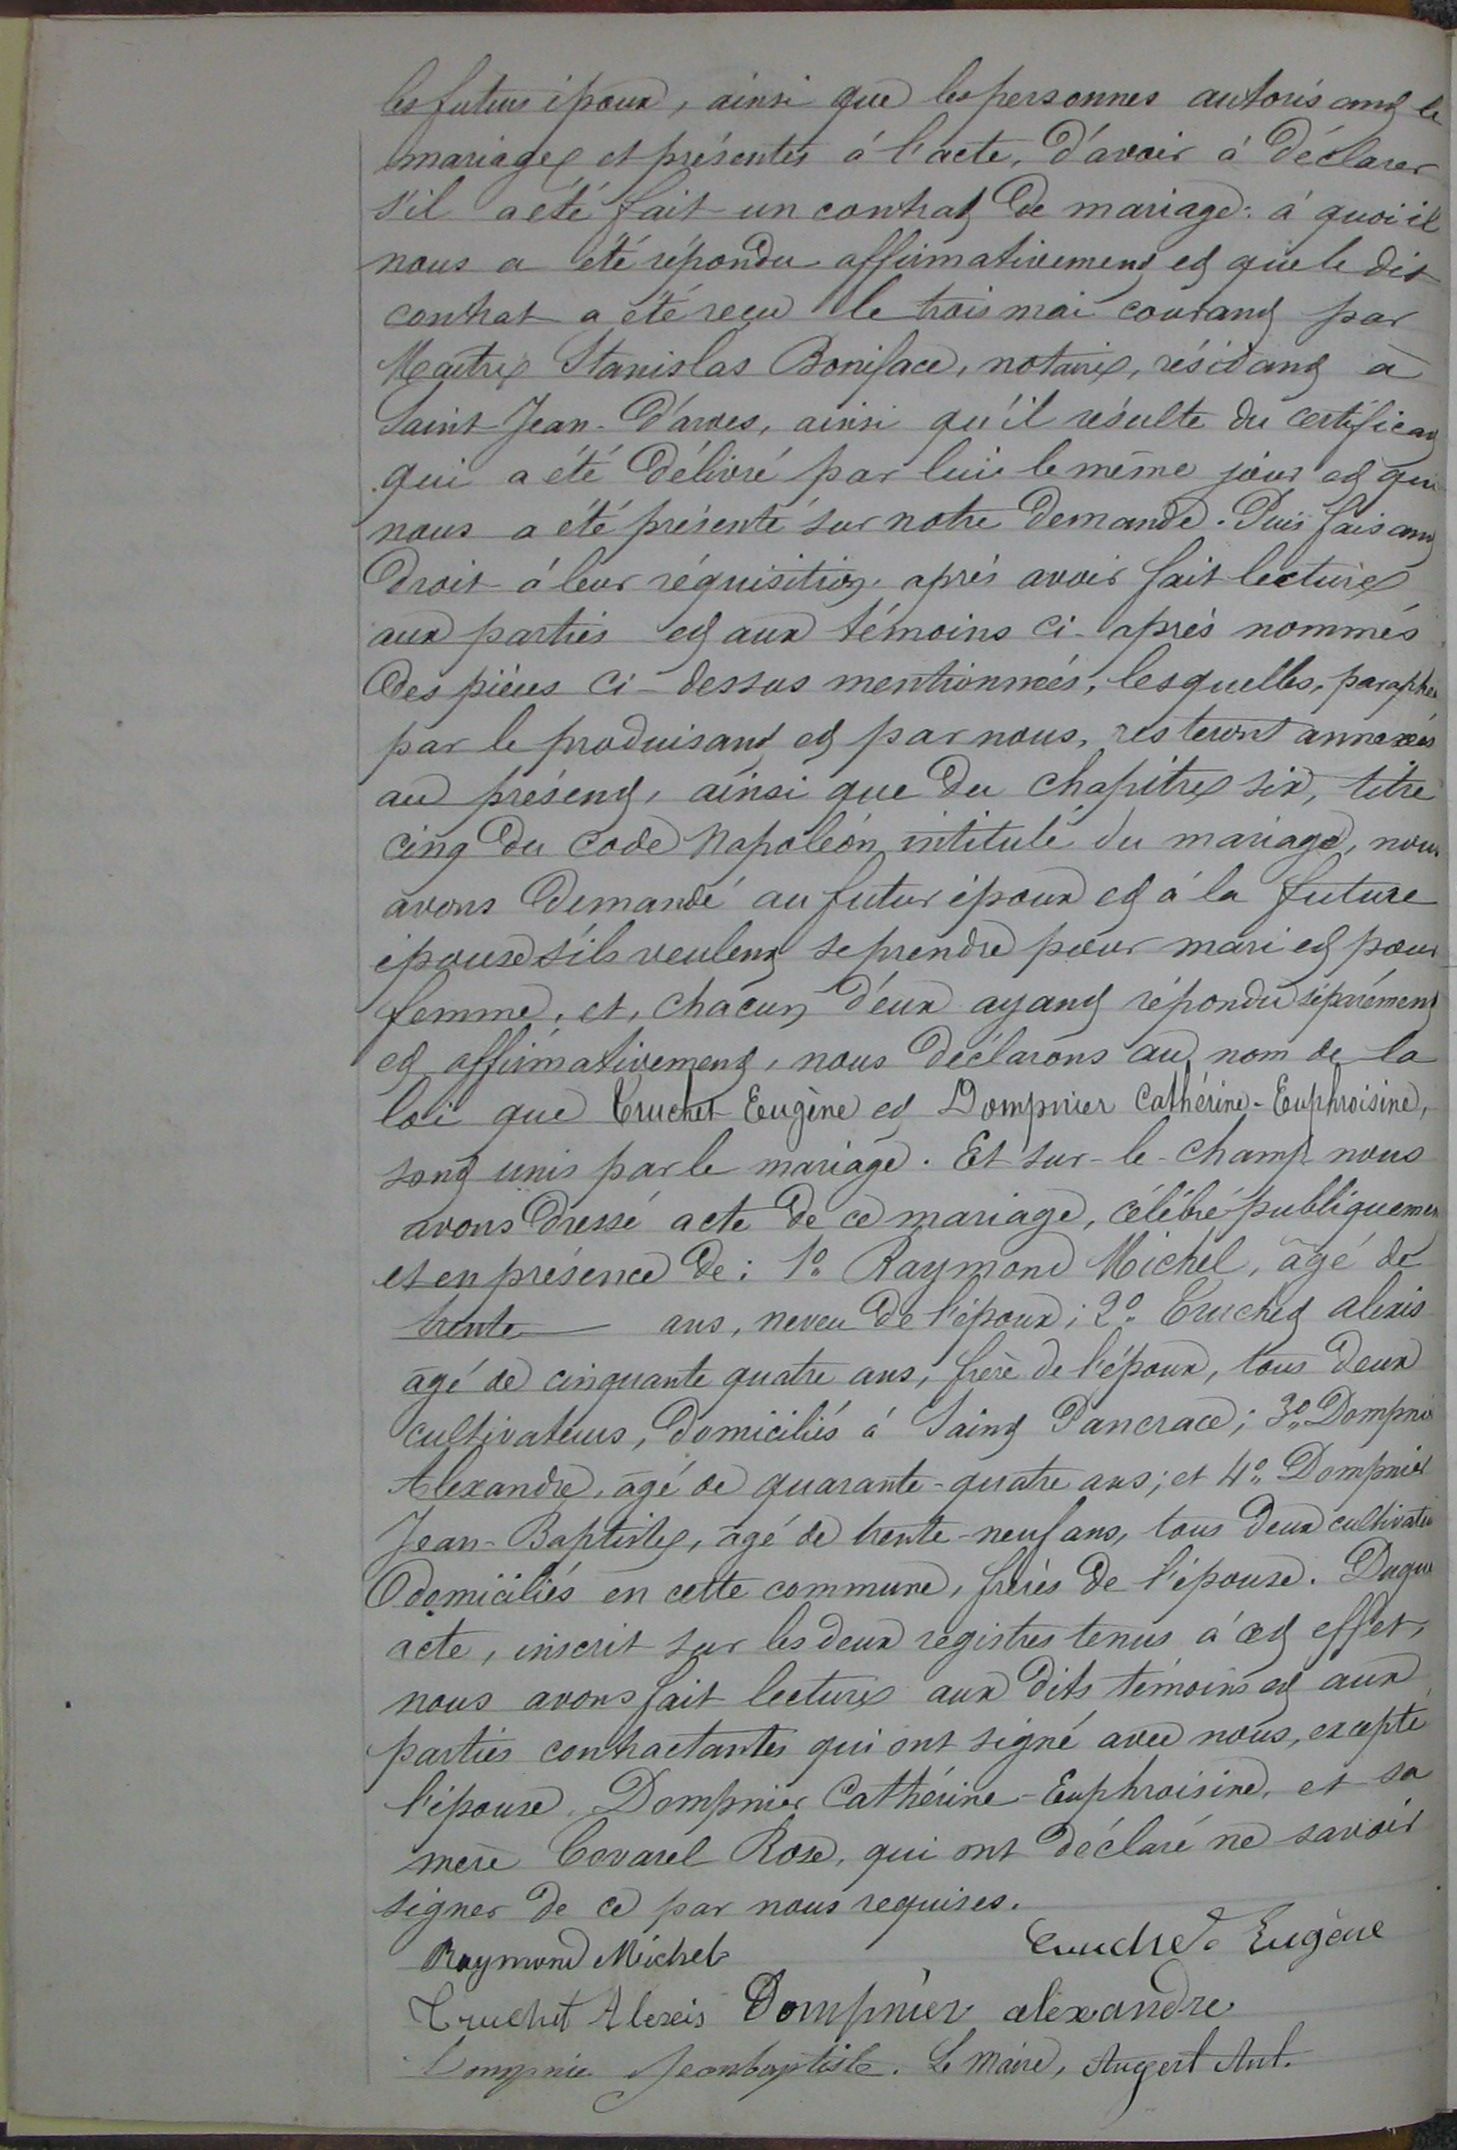 les futurs époux, ainsi que les personnes autorisant le
mariage et présentes à l'acte, d'avoir à déclarer
s'il a été fait un contrat de mariage: à quoi il
nous a été répondu affirmativement et que le dit
contrat a été reçu le trois mai courant par
Maître Stanislas Boniface, notaire, résidant à
Saint-Jean-d'arves, ainsi qu'il résulte du certificat
qui a été délivré par lui le même jour et qui
nous a été présenté sur notre demande. Puis faisant
droit à leur réquisition, après avoir fait lecture
aux parties et aux témoins ci-après nommés
des pièces ci-dessus mentionnées, lesquelles, paraphées
par le produisant et par nous, resteront annexées
au présent, ainsi que du chapitre six, titre
cinq du code Napoléon intitulé du mariage, nous
avons demandé au futur époux et à la future
épouse s'ils veulent se prendre pour mari et pour
femme, et, chacun d'eux ayant répondu séparément
et affirmativement, nous déclarons au nom de la
loi que Truchet Eugène et Dompnier Cathérine-Euphroisine,
sont unis par le mariage. Et sur-le-champ nous
avons dressé acte de ce mariage, célébré publiquement
et en présence de: 1º Raymond Michel, âgé de
trente ans, neveu de l'époux; 2º Truchet alexis
âgé de cinquante quatre ans, frère de l'époux, tous deux
cultivateurs, domiciliés à Saint Pancrace; 3º Dompnier
Alexandre, âgé de quarante-quatre ans; et 4º Dompnier
Jean-Baptiste, âgé de trente-neuf ans, tous deux cultivateurs
domiciliés en cette commune, frères de l'épouse. Duquel
acte, inscrit sur les deux registres tenus à cet effet,
nous avons fait lecture aux dits témoins et aux
parties contractantes qui ont signé avec nous, excepté
l'épouse Dompnier Cathérine-Euphroisine, et sa
mère Covarel Rose, qui ont déclaré ne savoir
signer de ce par nous requises.
Raymond Michel Truchet Eugène
Truchet Alexis Dompnier alexandre
Dompnier Jeanbaptiste. Le Maire, Augert Ant.